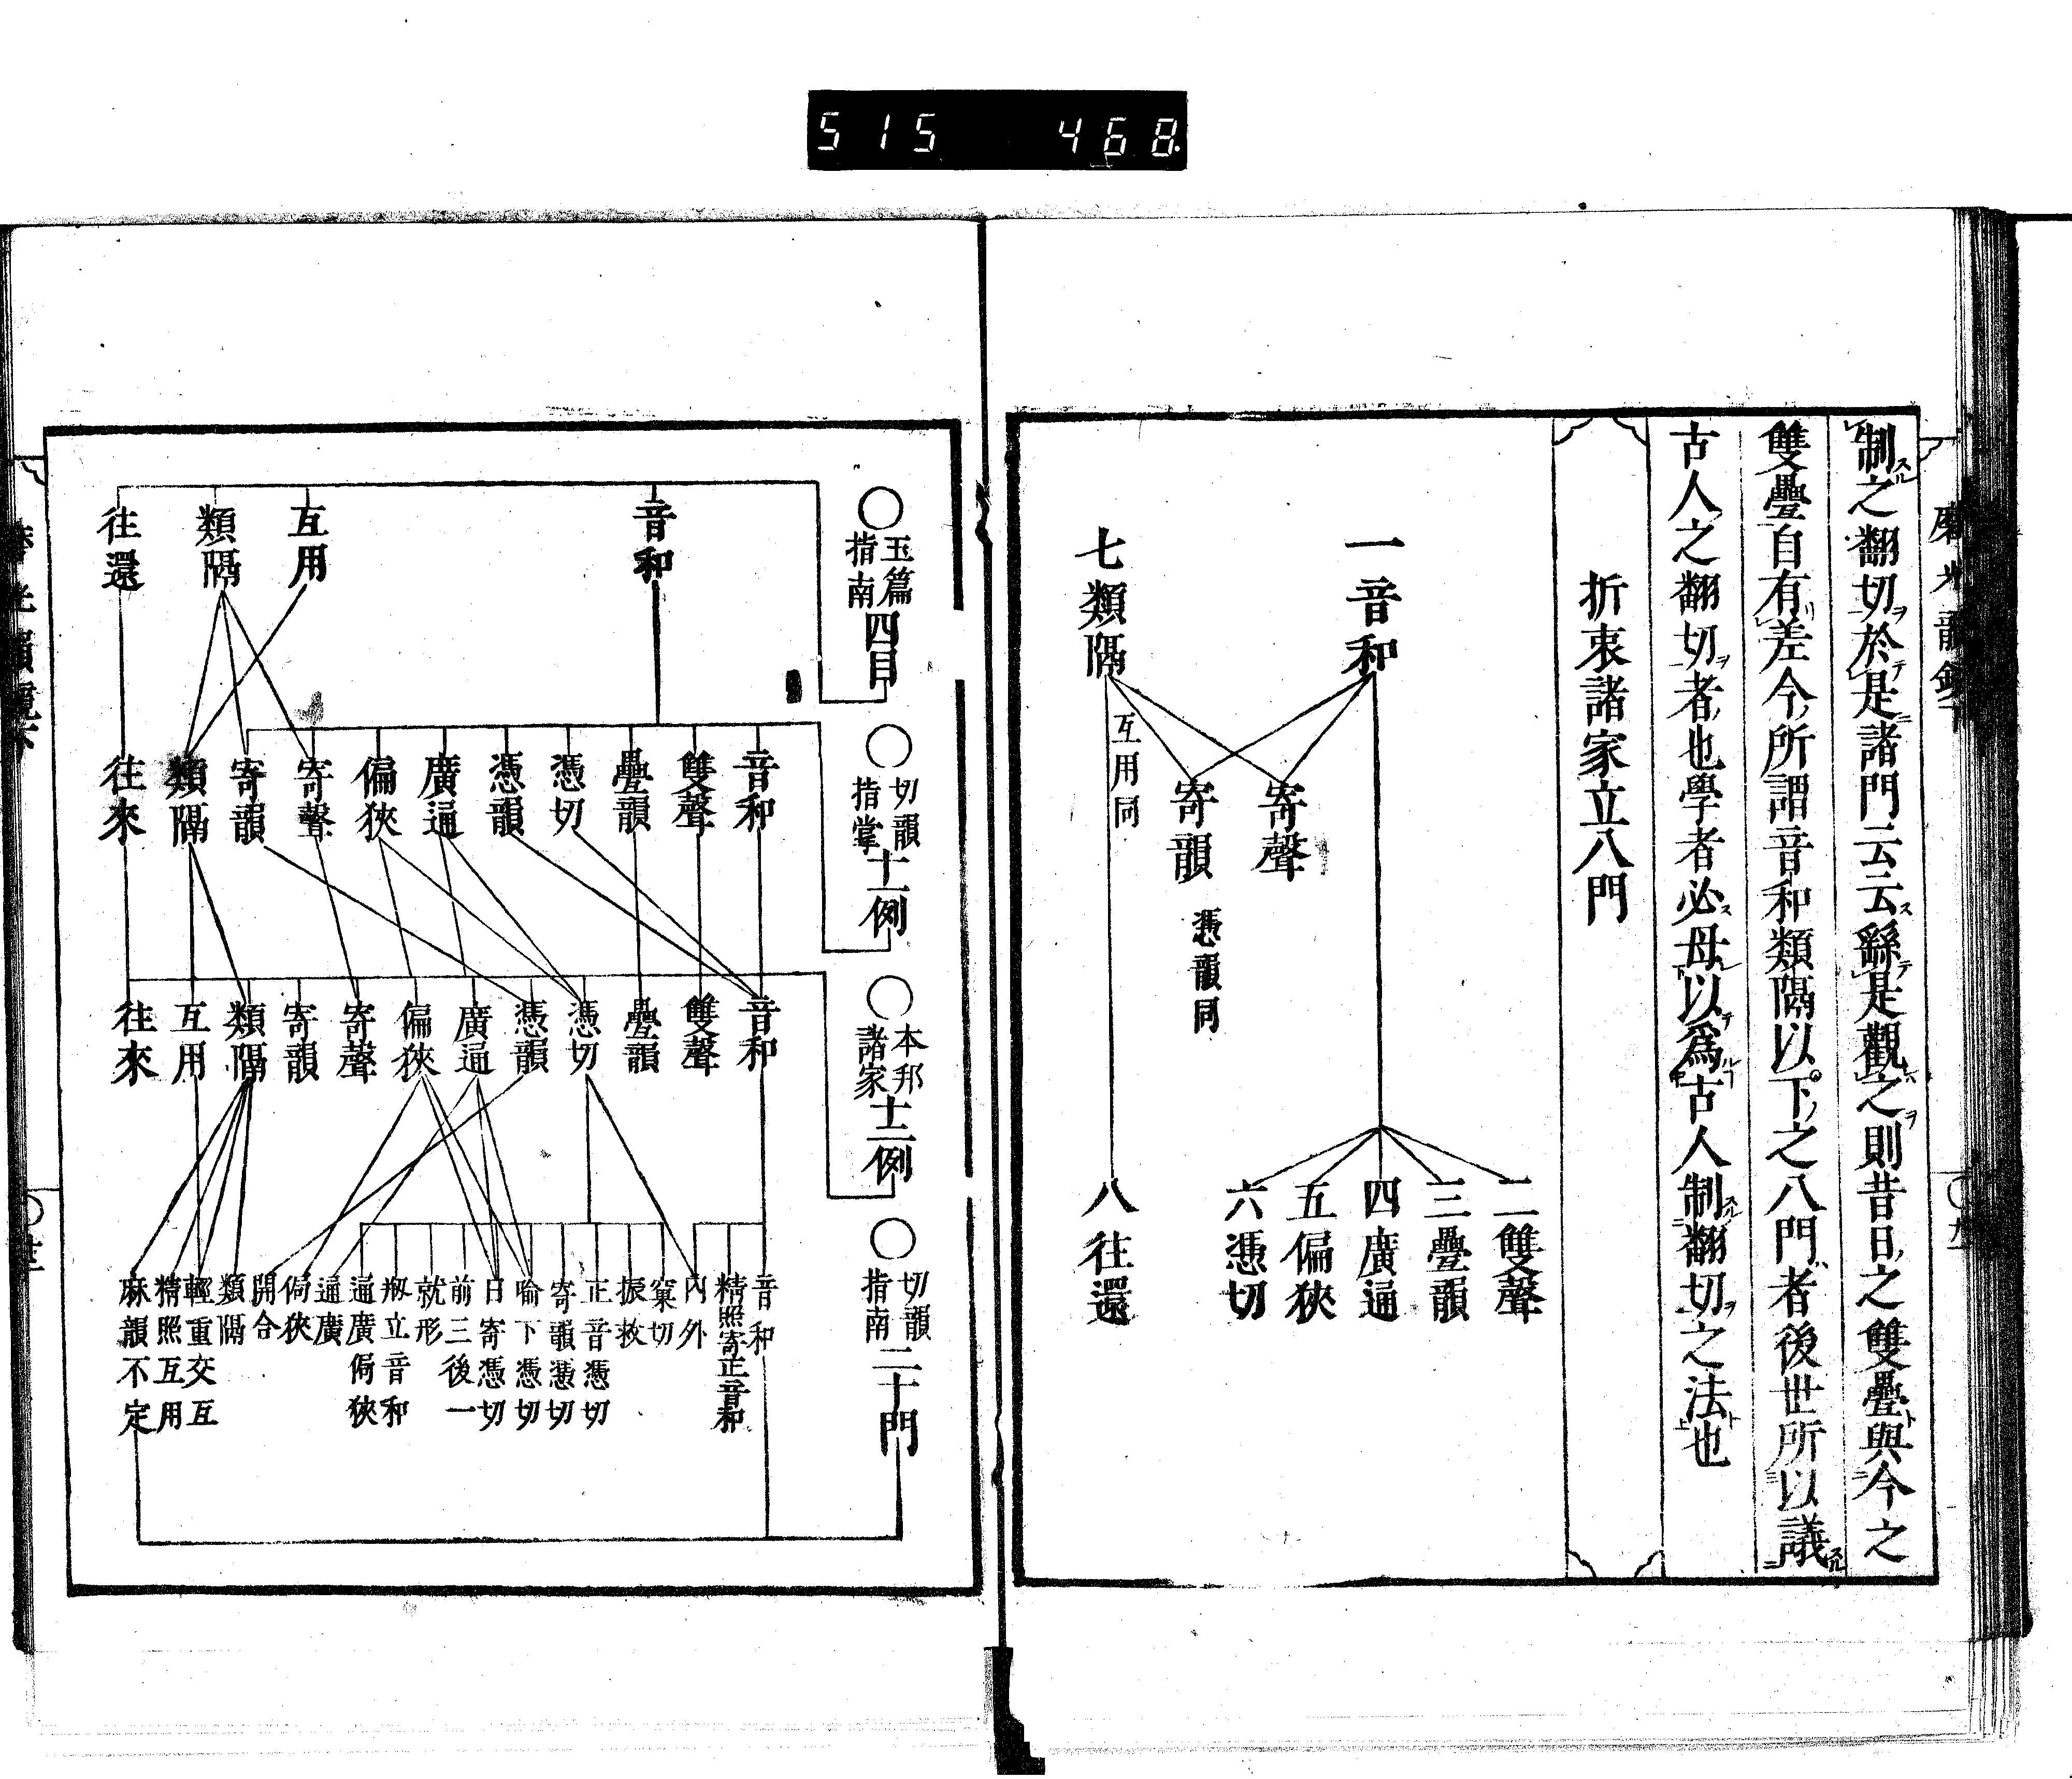 515 468
制之翻切於是諸門云云繇是觀之則昔日之雙疊與今之
雙疊自有差今所謂音和類隔以下之八門者後世所以議
古人之翻切者也學者必母以爲古人制翻切之法也
折衷諸家立八門
一音和
寄聲
寄韻
憑韻同
七類隔
互用同
二雙聲
三疊韻
四廣通
五偏狹
六憑切
八往還
○玉篇指南四目
音和
互用
類隔
往還
○切韻指掌十一例
音和
雙聲
疊韻
憑切
憑韻
廣通
偏狹
寄聲
寄韻
類隔
往來
○本邦諸家十二例
音和
雙聲
疊韻
憑切
憑韻
廣通
偏狹
寄聲
寄韻
類隔
互用
往來
○切韻指南二十門
音和
精照寄正音和
內外
窠切
振救
正音憑切
寄韻憑切
喻下憑切
日寄憑切
前三後一
就形
瓶立音和
通廣侷狹
通廣
侷狹
開合
類隔
輕重交互
精照互用
麻韻不定